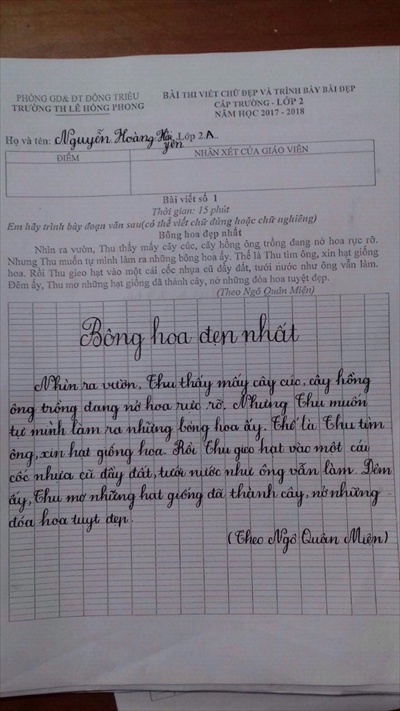 PHÒNG GD& ĐT ĐÔNG TRIỀU
TRƯỜNG TH LÊ HỒNG PHONG
BÀI THI VIẾT CHỮ ĐẸP VÀ TRÌNH BÀY BÀI ĐẸP
CẤP TRƯỜNG - LỚP 2
NĂM HỌC 2017 - 2018
Họ và tên: Nguyễn Hoàng Hải Yến Lớp 2.A
ĐIỂM
NHẬN XÉT CỦA GIÁO VIÊN
Bài viết số 1
Thời gian: 15 phút
Em hãy trình bày đoạn văn sau(có thể viết chữ đứng hoặc chữ nghiêng)
Bông hoa đẹp nhất
Nhìn ra vườn, Thu thấy mấy cây cúc, cây hồng ông trồng đang nở hoa rực rỡ.
Nhưng Thu muốn tự mình làm ra những bông hoa ấy. Thế là Thu tìm ông, xin hạt giống
hoa. Rồi Thu gieo hạt vào một cái cốc nhựa cũ đầy đất, tưới nước như ông vẫn làm.
Đêm ấy, Thu mơ những hạt giống đã thành cây, nở những đóa hoa tuyệt đẹp.
(Theo Ngô Quân Miện)
Bông hoa đẹp nhất
Nhìn ra vườn, Thu thấy mấy cây cúc, cây hồng
ông trồng đang nở hoa rực rỡ. Nhưng Thu muốn
tự mình làm ra những bông hoa ấy. Thế là Thu tìm
ông, xin hạt giống hoa. Rồi Thu gieo hạt vào một cái
cốc nhựa cũ đầy đất, tưới nước như ông vẫn làm. Đêm
ấy, Thu mơ những hạt giống đã thành cây, nở những
đóa hoa tuyt đẹp.
(Theo Ngô Quân Miện)